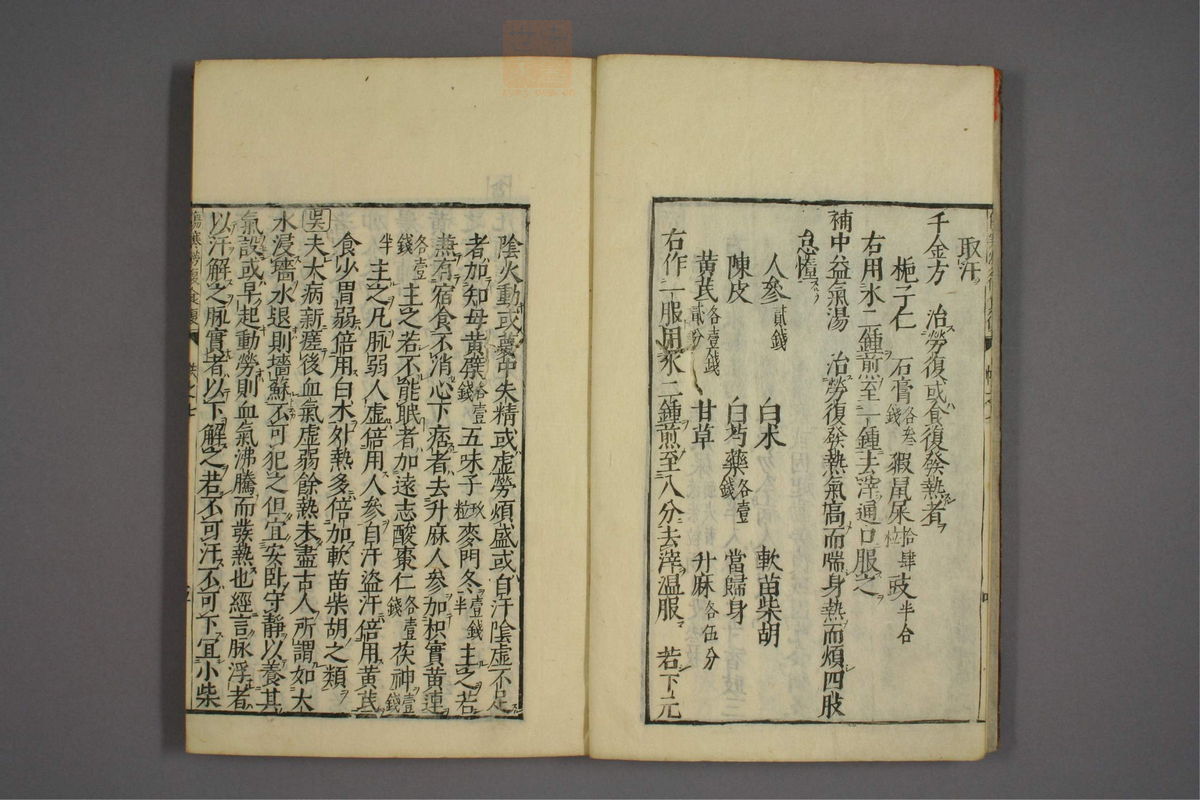 取汗
千金方 治勞復或食復發熱者
梔子仁 石膏各叁錢 豭鼠屎拾肆粒 豉半合
右用水二鍾煎至一鍾去滓通口服之
補中益氣湯 治勞復發熱氣高而喘身熱而煩四肢
怠惰
人參貳錢 白朮 軟苗柴胡
陳皮 白芍藥各壹錢 當歸身
黃芪各壹錢貳分 甘草 升麻各伍分
右作一服用水二鍾煎至八分去滓溫服 若下元
陰火動或夢中失精或虛勞煩盛或自汗陰虛不足
者加知母黃蘗各壹錢五味子玖粒麥門冬壹錢半主之若
兼有宿食不消心下痞者去升麻人參加枳實黃連
各壹錢主之若不能眠者加遠志酸棗仁各壹錢茯神壹錢
半主之凡脈弱人虛倍用人參自汗盜汗倍用黃芪
食少胃弱倍用白朮外熱多倍加軟苗柴胡之類
吳夫大病新瘥後血氣虛弱餘熱未盡古人所謂如大
水浸墻水退則墻蘇不可犯之但宜安臥守靜以養其
氣設或早起動勞則血氣沸騰而發熱也經言脈浮者
以汗解之脈實者以下解之若不可汗不可下宜小柴